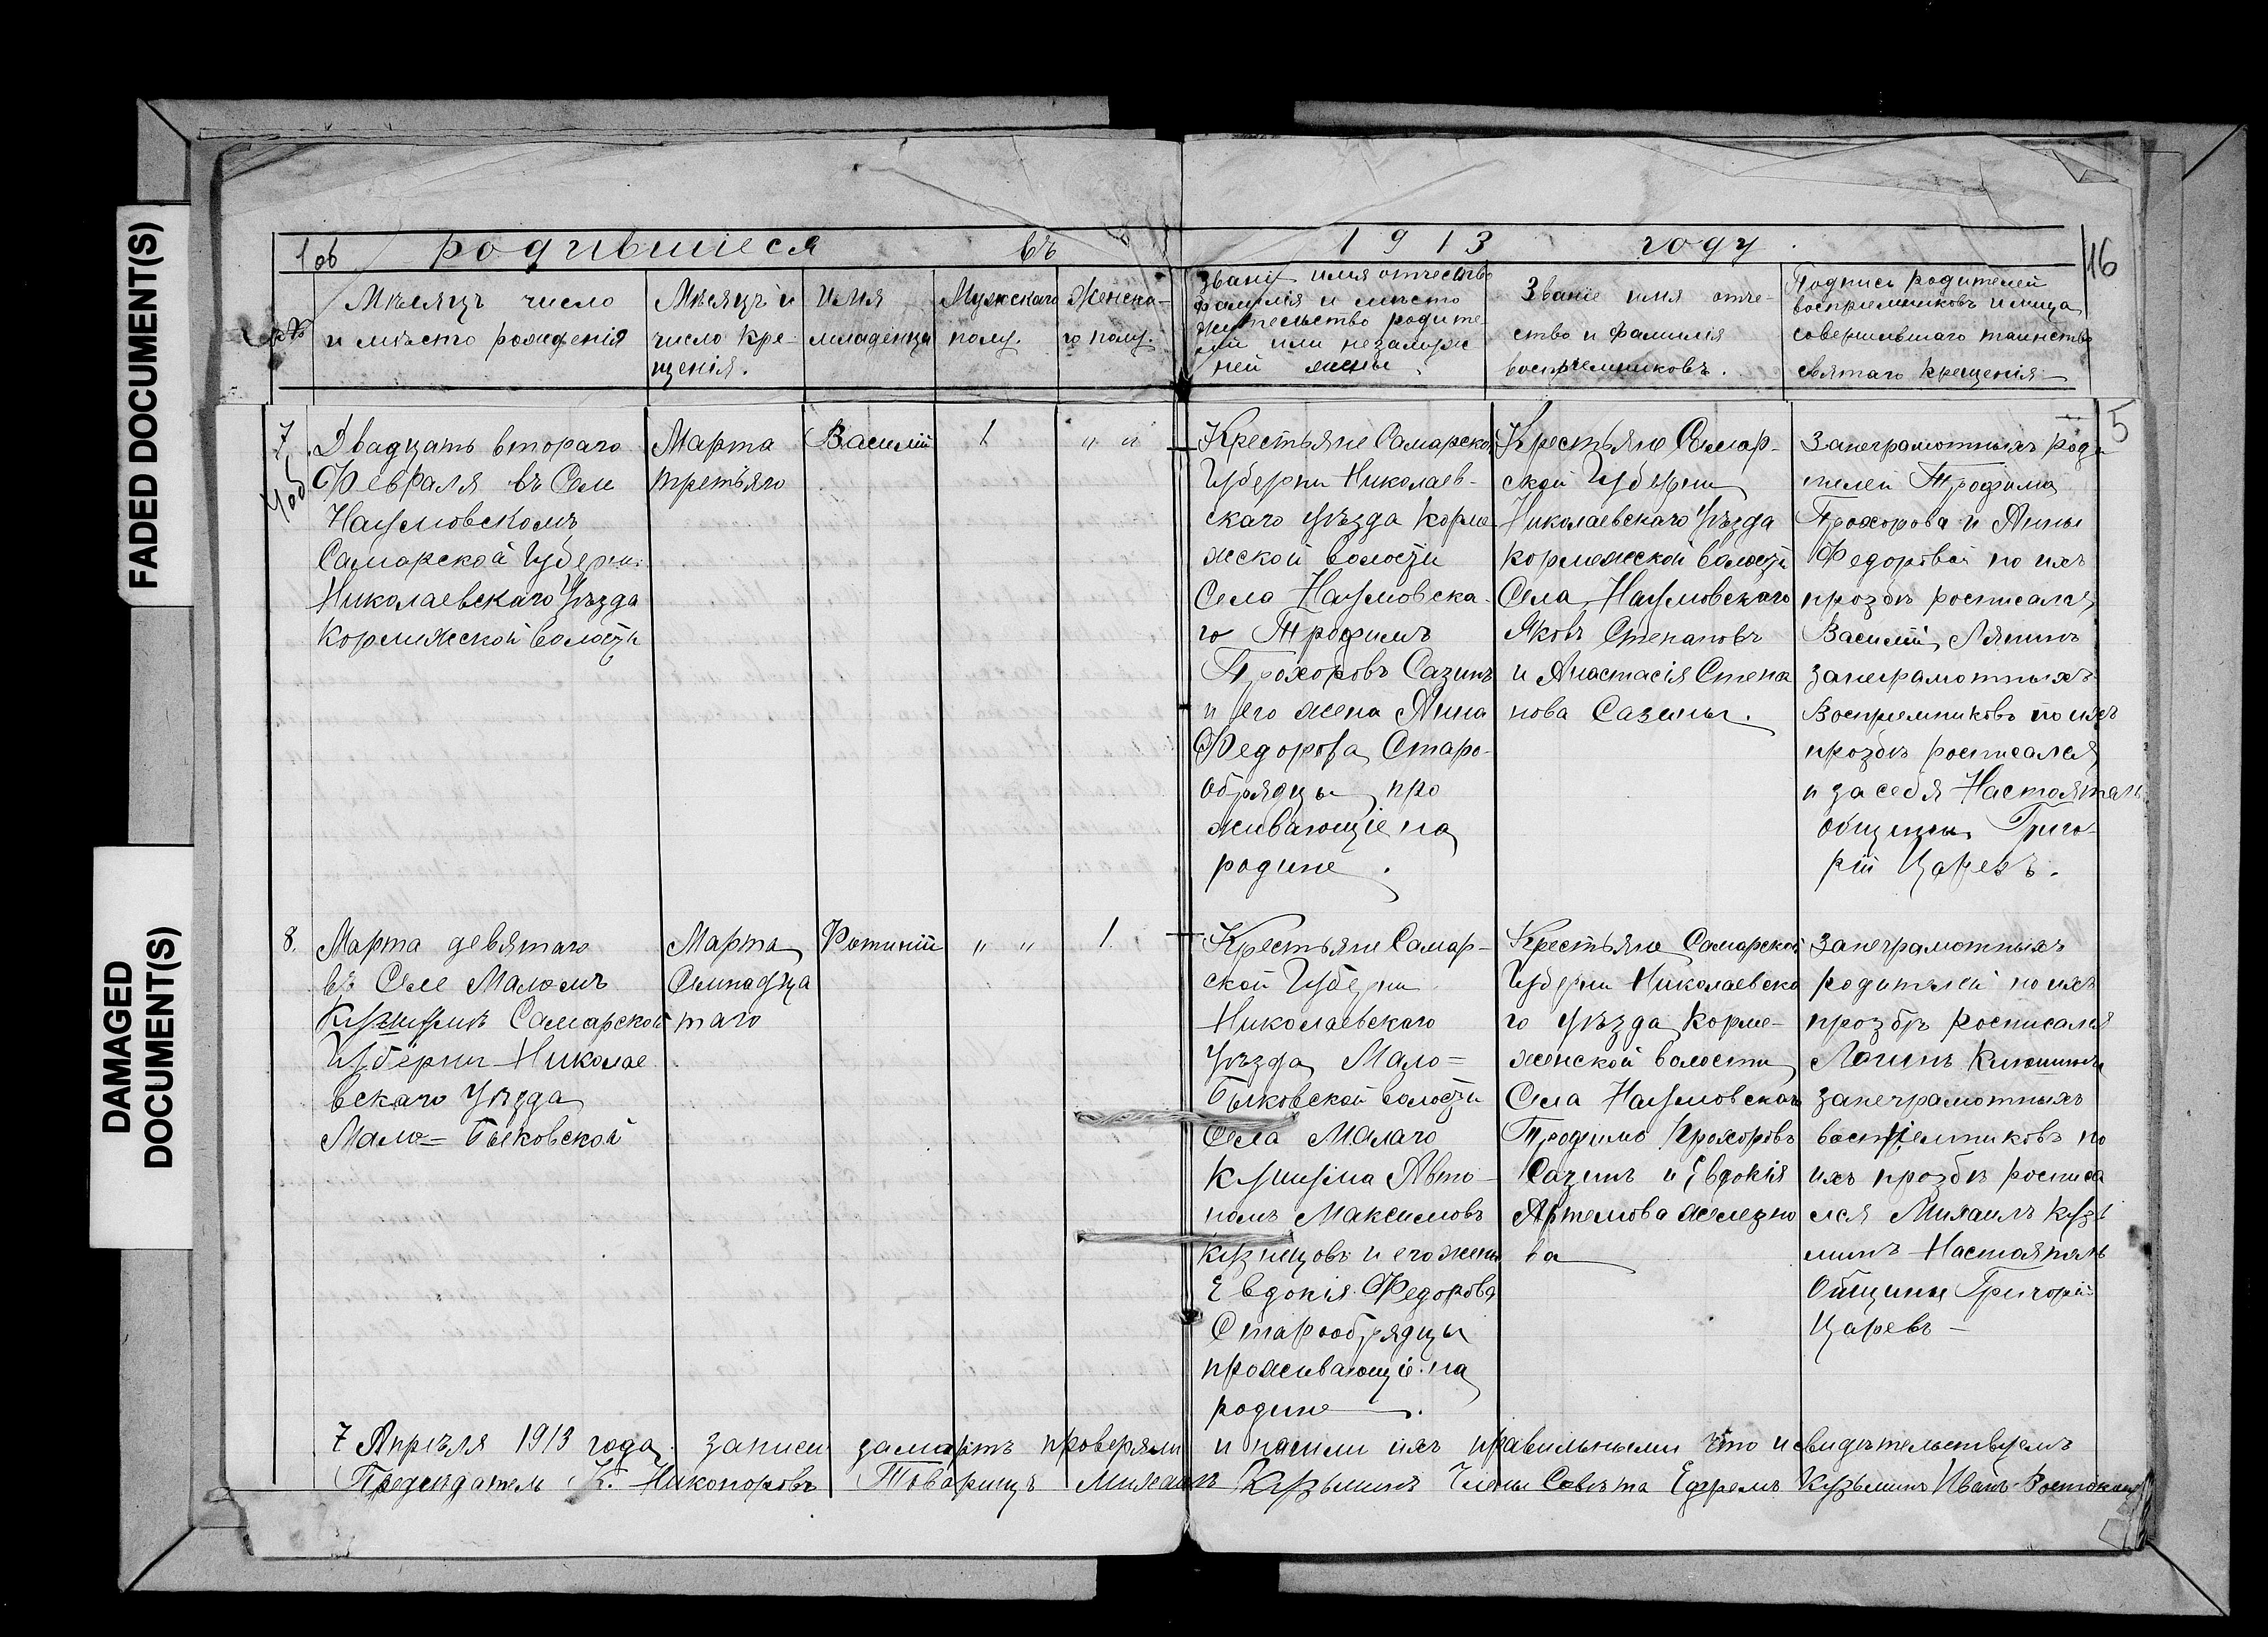 FADED DOCUMENT(S)
DAMAGED
DOCUMENT(S)
1об родившиеся въ 1913 году.
116
5
Мѣсяцъ число
и мѣсто рожденія
Мѣсяцъ и
число кре-
щенія.
Имя
младенца
Мужскаго
полу.
Женска-
го полу.
Званіе имя отчество
фамилія и мѣсто
жительство родите-
лей или незамуж
ней жены.
Званіе имя отче-
ство и фамилія
воспріемниковъ.
Подпись родителей
воспріемниковъ и лица
совершившаго таинство
святаго крещенія
7
4об
Двадцать втораго
Февраля въ Селе
Наумовскомъ
Самарской Губерніи
Николаевскаго Уѣзда
Кормежской волости
Марта
третьяго
Василій
1
" "
Крестьяне Самарской
Губерни Николаев-
скаго уѣзда Корме
жской волости
Села Наумовска-
го Трофимъ
Прохоровъ Сазинъ
и его жена Анна
Федорова Старо-
обрядцы про
живающіе на
родине.
Крестьяне Самар-
ской Губерни
Николаевскаго Уѣзда
Кормежской волости
Села Наумовскаго
Яковъ Степановъ
и Анастасія Степа
нова Сазины.
Занеграмотныхъ роди
телей Трофима
Прохорова и Анны
Федоровой по ихъ
прозбѣ росписался
Василій Ляпинъ
занеграмотныхъ
Воспремниковъ по ихъ
прозбѣ росписался
и за себя Настоятель
общины Григо-
рій Царевъ.
8.
Марта девятаго
въ Селе Маломъ
Кушумѣ Самарской
Губерни Николае
вскаго Уѣзда
Мало=Быковской
Марта
Семнадца
таго
Фотиній
" "
1.
Крестьяне Самар-
ской Губерни
Николаевскаго
Уѣзда Мало=
Быковской волости
Села Малаго
Кушума Авто-
номъ Максимовъ
Кузнецовъ и его жена
Евдокія Федорова
Старообрядцы
проживающіе на
родине.
Крестьяне Самарской
Губерни Николаевска
го уѣзда Корме-
женской волости
Села Наумовскаго
Трофимъ Прохоровъ
Сазинъ и Евдокія
Артемова Железно
ва
Занеграмотныхъ
родителей по ихъ
прозбѣ росписался
Логинъ Клюшинъ
занеграмотныхъ
воспріемниковъ по
ихъ прозбѣ росписа
лся Михаилъ Кузь
минъ Настоятель
Общины Григорій
Царевъ
7 Апрѣля 1913 года. записи за мартъ проверяли и нашли ихъ правильными что и свидѣтельствуемъ
Председатель К. Никоноровъ Товарищъ Михаилъ Кузьминъ Члены Совѣта Ефремъ Кузьминъ Иванъ